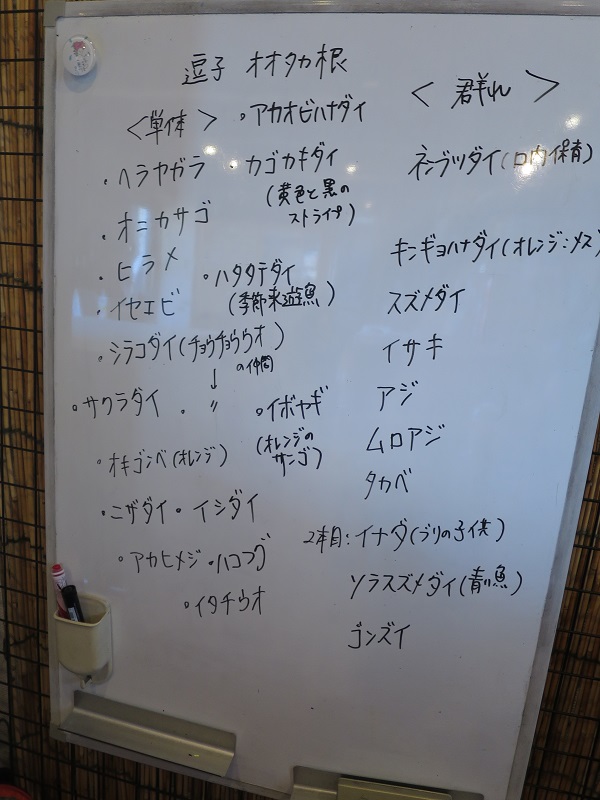 逗子 オオタカ根
<単体>
・アカオビハナダイ
・ヘラヤガラ
・カゴカキダイ
(黄色と黒の
ストライプ)
・オニカサゴ
・ヒラメ
・ハタタテダイ
(季節来遊魚)
・イセエビ
・シラコダイ(チョウチョウウオ
の仲間)
↓
・サクラダイ ・ 〃
・イボヤギ
(オレンジの
サンゴ)
・オキゴンベ(オレンジ)
・ニザダイ・イシダイ
・アカヒメジ・ハコフグ
・イタチウオ
<群れ>
ネンブツダイ(口内保育)
キンギョハナダイ(オレンジ:メス)
スズメダイ
イサキ
アジ
ムロアジ
タカベ
2本目:イナダ(ブリの子供)
ソラスズメダイ(青い魚)
ゴンズイ